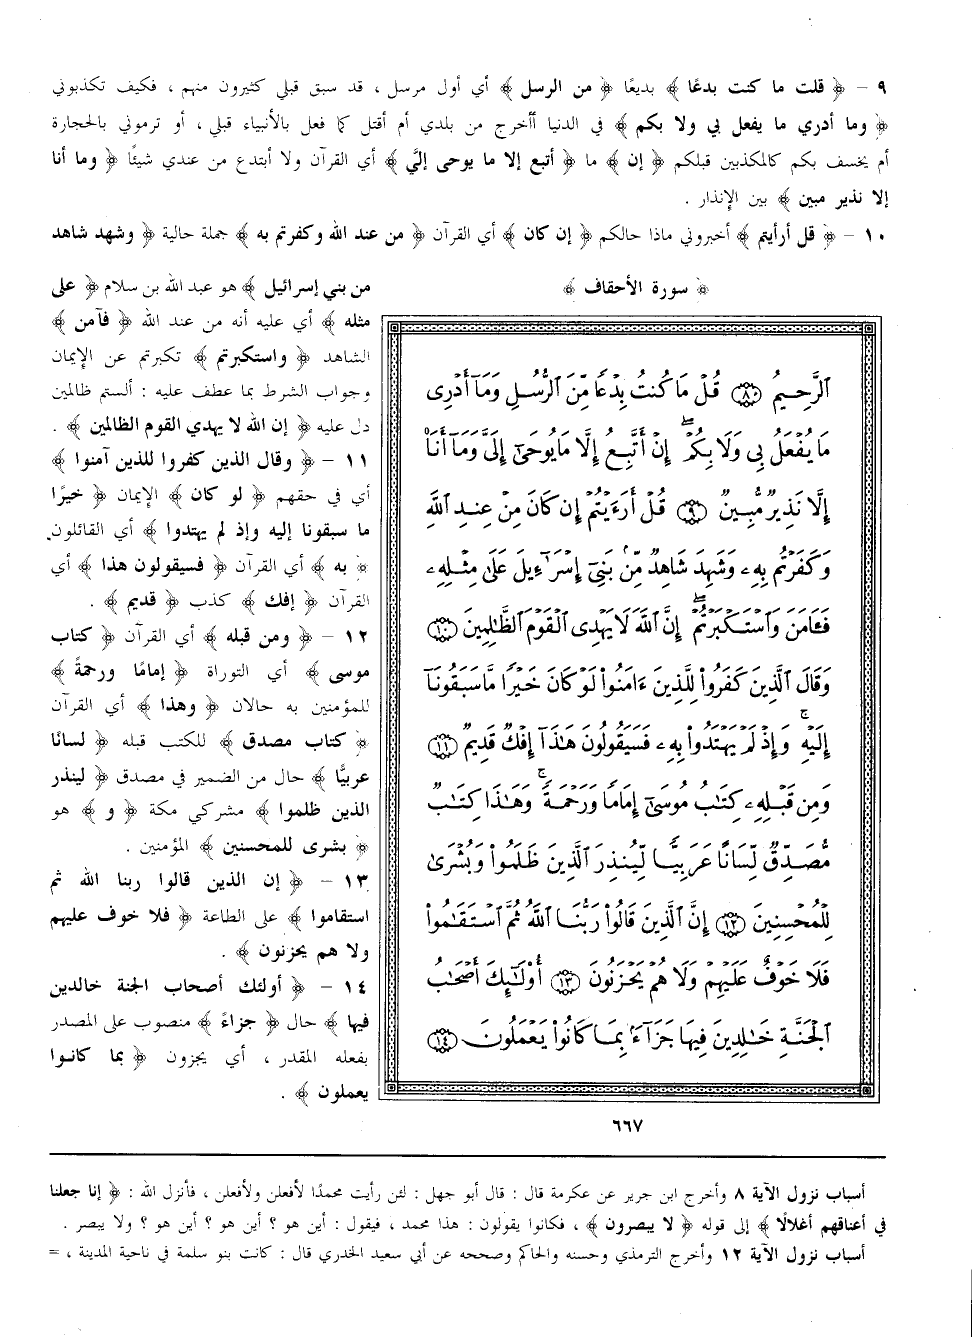 ٩ - ﴿ قلت ما كنت بدعًا ﴾ بديعًا ﴿ من الرسل ﴾ أي أول مرسل ، قد سبق قبلي كثيرون منهم ، فكيف تكذبوني
﴿ وما أدري ما يفعل بي ولا بكم ﴾ في الدنيا أأخرج من بلدي أم أقتل كما فعل بالأنبياء قبلي ، أو ترموني بالحجارة
أم يخسف بكم كالمكذبين قبلكم ﴿ إن ﴾ ما ﴿ أتبع إلا ما يوحى إليَّ ﴾ أي القرآن ولا أبتدع من عندي شيئًا ﴿ وما أنا
إلا نذير مبين ﴾ بين الإنذار .
١٠ - ﴿ قل أرأيتم ﴾ أخبروني ماذا حالكم ﴿ إن كان ﴾ أي القرآن ﴿ من عند الله وكفرتم به ﴾ جملة حالية ﴿ وشهد شاهد
من بني إسرائيل ﴾ هو عبد الله بن سلام ﴿ على
مثله ﴾ أي عليه أنه من عند الله ﴿ فآمن ﴾
الشاهد ﴿ واستكبرتم ﴾ تكبرتم عن الإيمان
وجواب الشرط بما عطف عليه : ألستم ظالمين
دل عليه ﴿ إن الله لا يهدي القوم الظالمين ﴾ .
١١ - ﴿ وقال الذين كفروا للذين آمنوا ﴾
أي في حقهم ﴿ لو كان ﴾ الإيمان ﴿ خيرًا
ما سبقونا إليه وإذ لم يهتدوا ﴾ أي القائلون
﴿ به ﴾ أي القرآن ﴿ فسيقولون هذا ﴾ أي
القرآن ﴿ إفك ﴾ كذب ﴿ قديم ﴾ .
١٢ - ﴿ ومن قبله ﴾ أي القرآن ﴿ كتاب
موسى ﴾ أي التوراة ﴿ إمامًا ورحمةً ﴾
للمؤمنين به حالان ﴿ وهذا ﴾ أي القرآن
﴿ كتاب مصدق ﴾ للكتب قبله ﴿ لسانًا
عربيًّا ﴾ حال من الضمير في مصدق ﴿ لينذر
الذين ظلموا ﴾ مشركي مكة ﴿ و ﴾ هو
﴿ بشرى للمحسنين ﴾ المؤمنين .
١٣ - ﴿ إن الذين قالوا ربنا الله ثم
استقاموا ﴾ على الطاعة ﴿ فلا خوف عليهم
ولا هم يحزنون ﴾ .
١٤ - ﴿ أولئك أصحاب الجنة خالدين
فيها ﴾ حال ﴿ جزاءً ﴾ منصوب على المصدر
بفعله المقدر ، أي يجزون ﴿ بما كانوا
يعملون ﴾ .
﴿ سورة الأحقاف ﴾
ٱلرَّحِيمُ ٨ قُلْ مَا كُنتُ بِدْعًا مِّنَ ٱلرُّسُلِ وَمَآ أَدْرِى
مَا يُفْعَلُ بِى وَلَا بِكُمْ ۖ إِنْ أَتَّبِعُ إِلَّا مَا يُوحَىٰٓ إِلَىَّ وَمَآ أَنَا۠
إِلَّا نَذِيرٌ مُّبِينٌ ٩ قُلْ أَرَءَيْتُمْ إِن كَانَ مِنْ عِندِ ٱللَّهِ
وَكَفَرْتُم بِهِۦ وَشَهِدَ شَاهِدٌ مِّنۢ بَنِىٓ إِسْرَٰٓءِيلَ عَلَىٰ مِثْلِهِۦ
فَـَٔامَنَ وَٱسْتَكْبَرْتُمْ ۖ إِنَّ ٱللَّهَ لَا يَهْدِى ٱلْقَوْمَ ٱلظَّٰلِمِينَ ١٠
وَقَالَ ٱلَّذِينَ كَفَرُوا۟ لِلَّذِينَ ءَامَنُوا۟ لَوْ كَانَ خَيْرًا مَّا سَبَقُونَآ
إِلَيْهِ ۚ وَإِذْ لَمْ يَهْتَدُوا۟ بِهِۦ فَسَيَقُولُونَ هَٰذَآ إِفْكٌ قَدِيمٌ ١١
وَمِن قَبْلِهِۦ كِتَٰبُ مُوسَىٰٓ إِمَامًا وَرَحْمَةً ۚ وَهَٰذَا كِتَٰبٌ
مُّصَدِّقٌ لِّسَانًا عَرَبِيًّا لِّيُنذِرَ ٱلَّذِينَ ظَلَمُوا۟ وَبُشْرَىٰ
لِلْمُحْسِنِينَ ١٢ إِنَّ ٱلَّذِينَ قَالُوا۟ رَبُّنَا ٱللَّهُ ثُمَّ ٱسْتَقَٰمُوا۟
فَلَا خَوْفٌ عَلَيْهِمْ وَلَا هُمْ يَحْزَنُونَ ١٣ أُو۟لَٰٓئِكَ أَصْحَٰبُ
ٱلْجَنَّةِ خَٰلِدِينَ فِيهَا جَزَآءًۢ بِمَا كَانُوا۟ يَعْمَلُونَ ١٤
٦٦٧
أسباب نزول الآية ٨ وأخرج ابن جرير عن عكرمة قال : قال أبو جهل : لئن رأيت محمدًا لأفعلن ولأفعلن ، فأنزل الله : ﴿ إنا جعلنا
في أعناقهم أغلالًا ﴾ إلى قوله ﴿ لا يبصرون ﴾ ، فكانوا يقولون : هذا محمد ، فيقول : أين هو ؟ أين هو ؟ أين هو ؟ ولا يبصر .
أسباب نزول الآية ١٢ وأخرج الترمذي وحسنه والحاكم وصححه عن أبي سعيد الخدري قال : كانت بنو سلمة في ناحية المدينة ، =